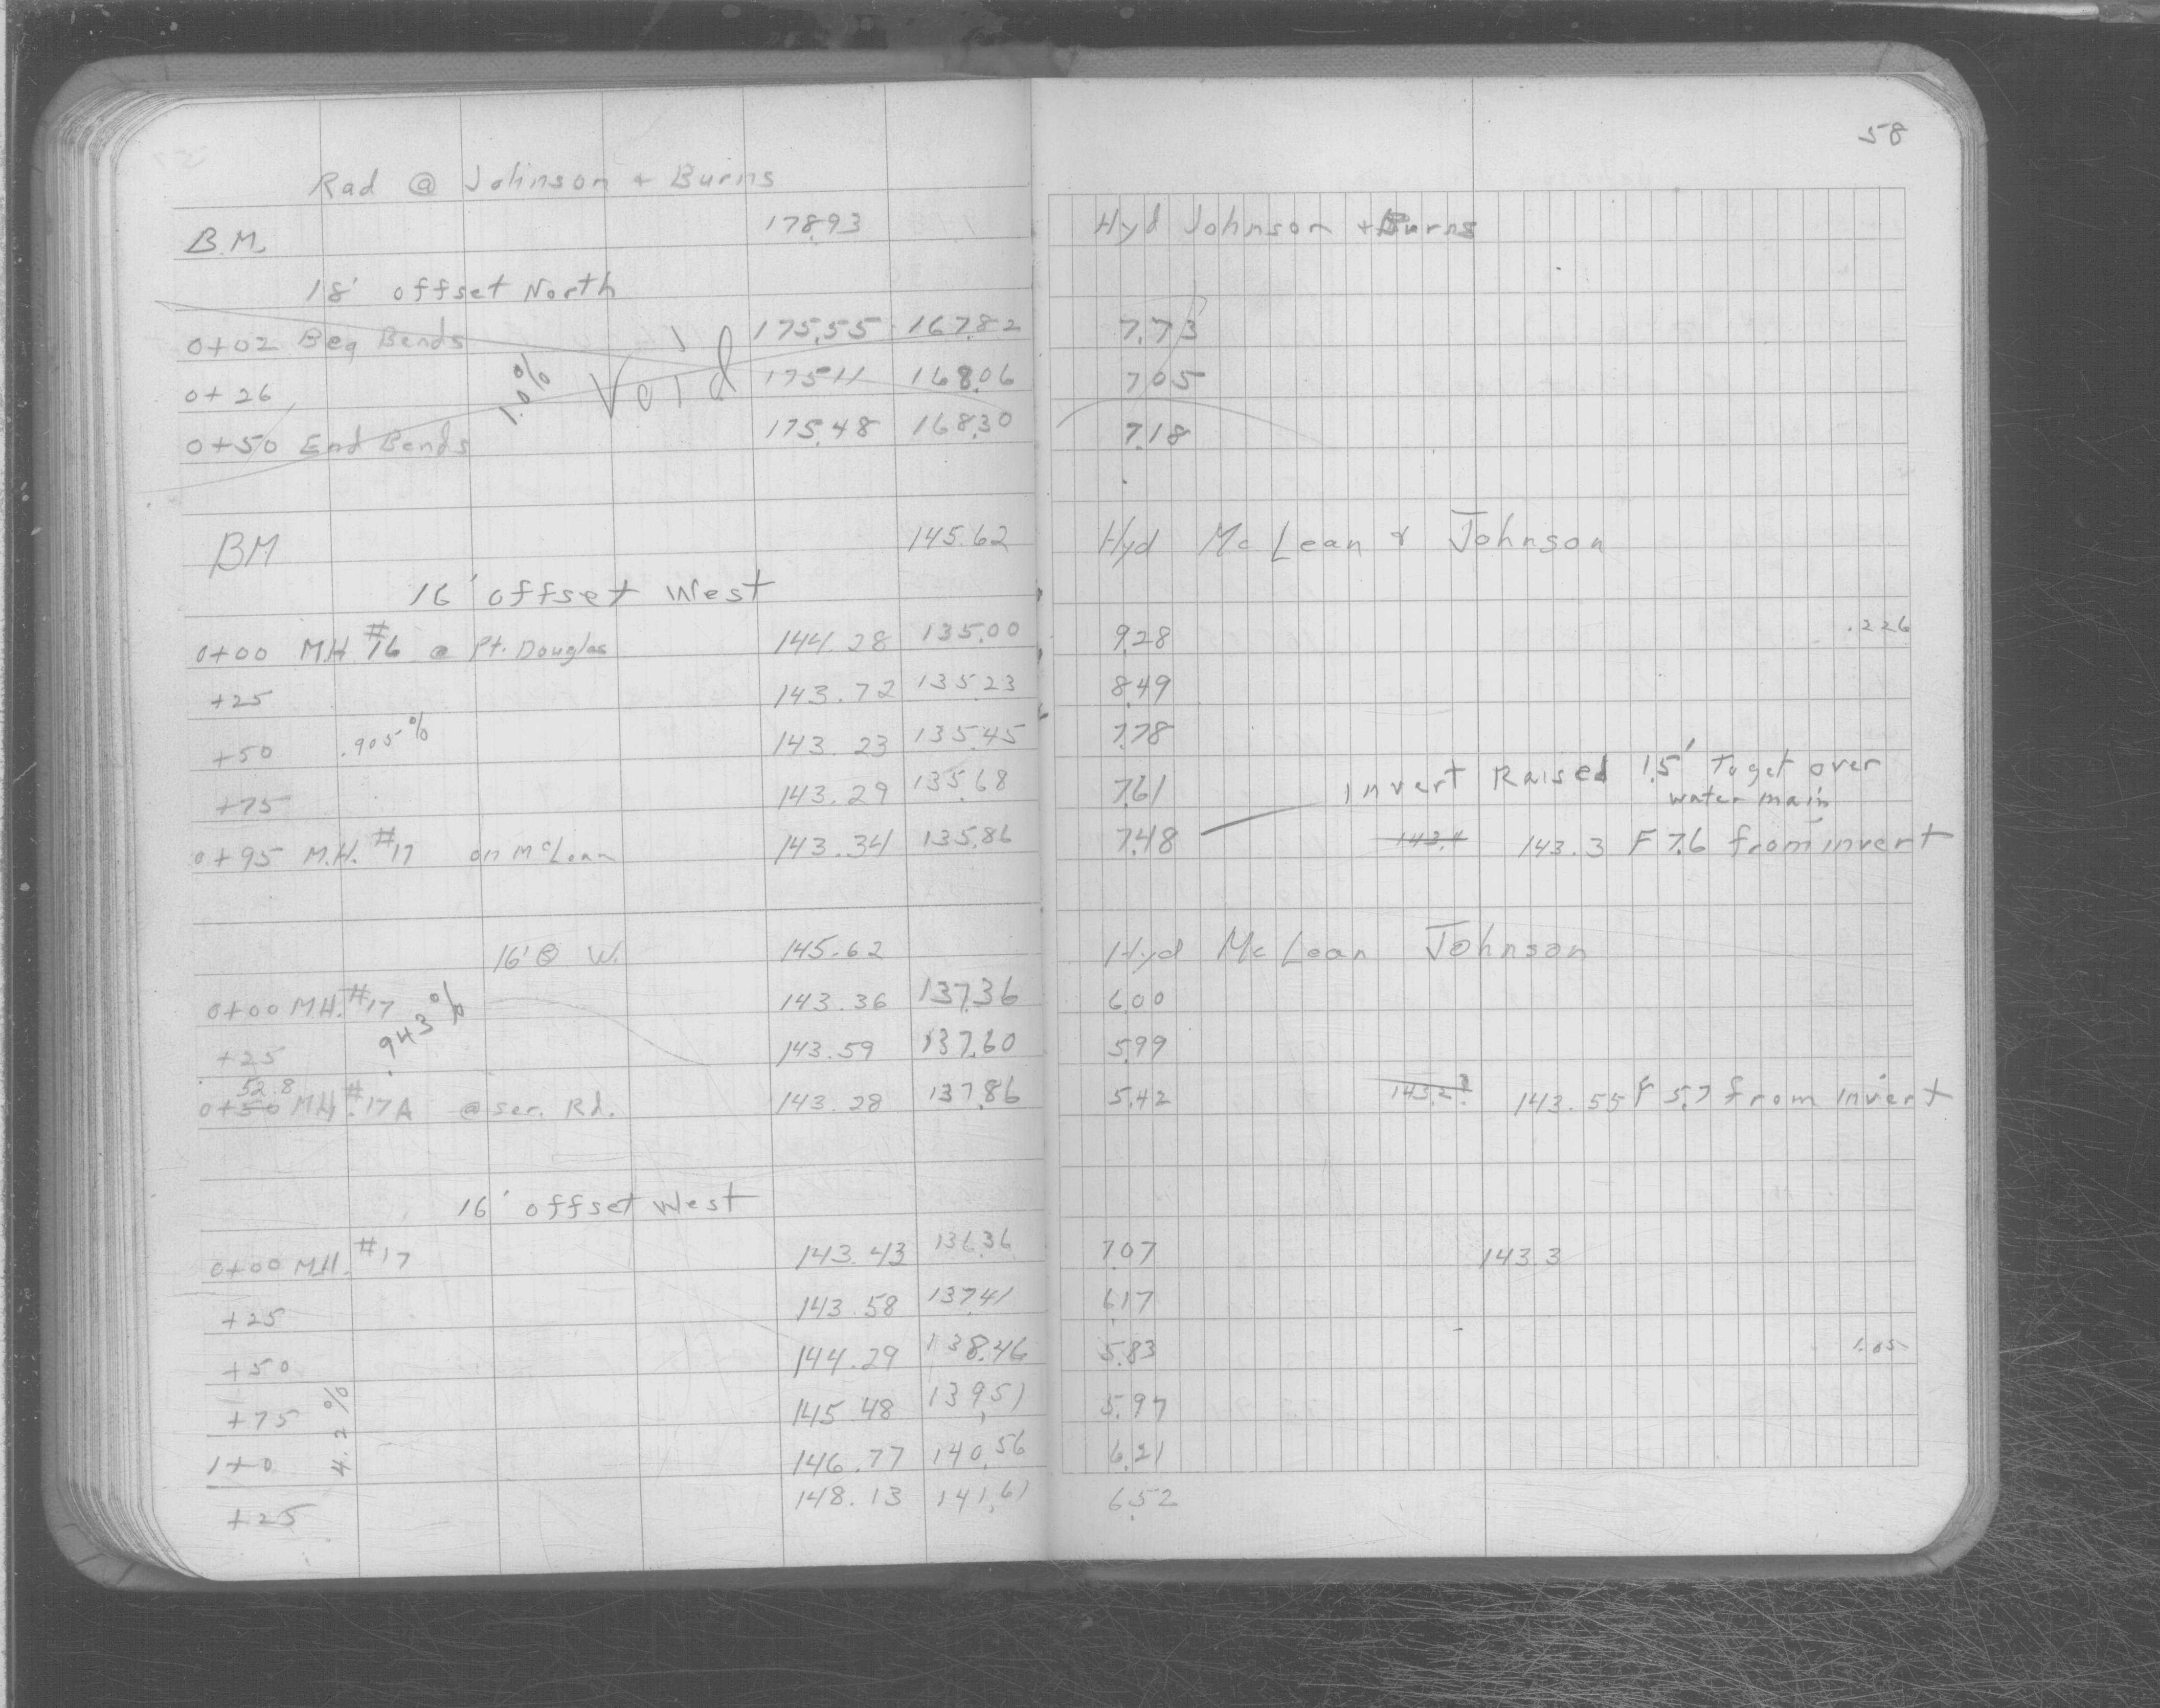 58
Rad @ Johnson + Burns
B.M. 178.93 Hyd Johnson + Burns
18' offset North
0+02 Beg Bends 175.55 167.82 7.73
0+26 1.0% Void 175.11 168.06 7.05
0+50 End Bends 175.48 168.30 7.18
BM 145.62 Hyd McLean & Johnson
16' offset West
0+00 M.H. #16 @ Pt. Douglas 144.28 135.00 9.28 .226
+25 143.72 135.23 8.49
+50 .905% 143.23 135.45 7.78
+75 143.29 135.68 7.61 Invert Raised 1.5' To get over
water main
0+95 M.H. #17 on McLean 143.34 135.86 7.48 143.4 143.3 F 7.6 from invert
16' @ W. 145.62 Hyd McLean Johnson
0+00 M.H. #17 143.36 137.36 6.00
+25 .943% 143.59 137.60 5.99
52.8
0+50 M.H. #17A @ ser. Rd. 143.28 137.86 5.42 143.2? 143.55 F 5.7 from invert
16' offset West
0+00 M.H. #17 143.43 136.36 7.07 143.3
+25 143.58 137.41 6.17
+50 144.29 138.46 5.83 1.05
+75 4.2% 145.48 139.51 5.97
1+0 146.77 140.56 6.21
+25 148.13 141.61 6.52